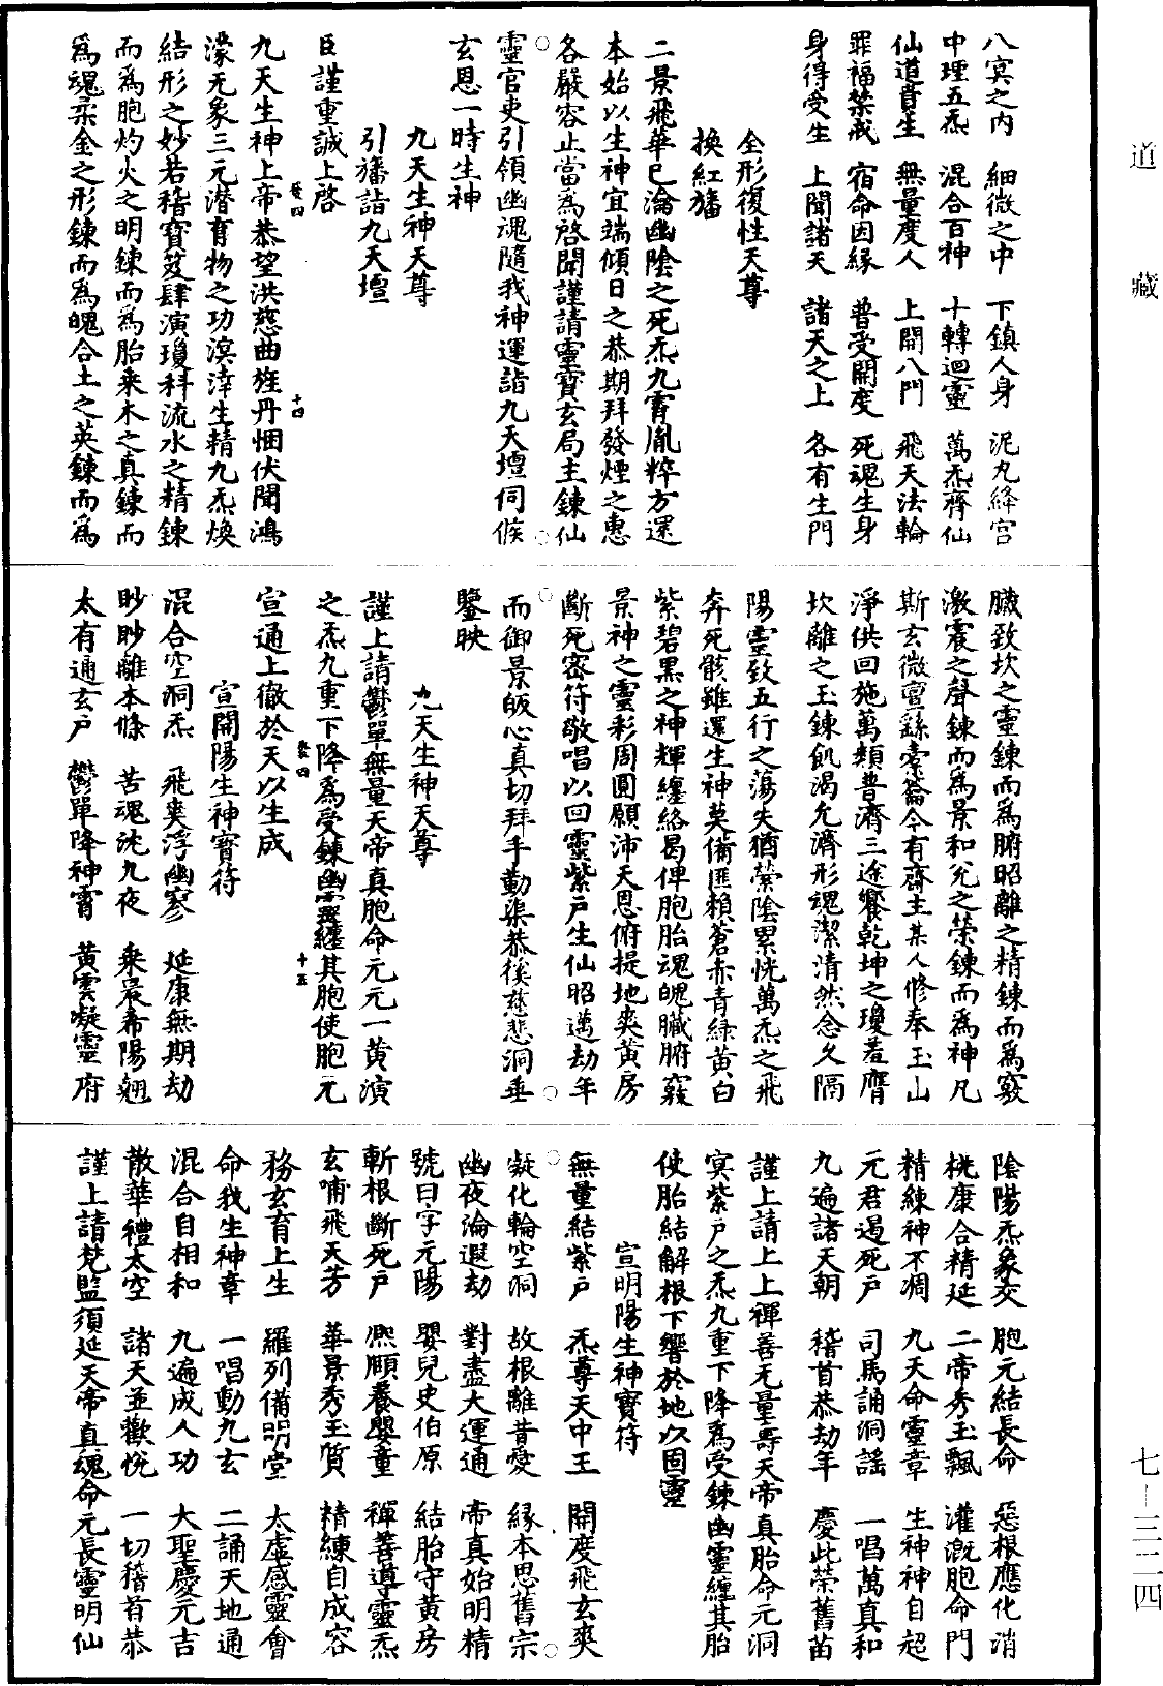 道藏
八冥之内　細微之中　下鎮人身　泥丸絳宮
中理五炁　混合百神　十轉迴靈　萬炁齊仙
仙道貴生　無量度人　上開八門　飛天法輪
罪福禁戒　宿命因緣　普受開度　死魂生身
身得受生　上聞諸天　諸天之上　各有生門
全形復性天尊
換紅旛
二景飛華已淪幽陰之死炁九霄胤粹方還
本始以生神宜端傾日之恭期拜發煙之惠
各嚴容止當為啓聞謹請靈寳玄局主鍊仙
靈官吏引領幽魂隨我神運詣九天壇伺候
玄恩一時生神
九天生神天尊
引旛詣九天壇
臣謹重誠上啓
九天生神上帝恭望洪慈曲旌丹悃伏聞鴻
濛无象三元潜育物之功溟涬生精九炁煥
結形之妙若稽寳笈肆演瓊科流水之精鍊
而為胞灼火之明鍊而為胎乘木之真鍊而
為魂柔金之形鍊而為魄合土之英鍊而為
臓致坎之靈鍊而為腑昭離之精鍊而為竅
激震之聲鍊而為景和兊之榮鍊而為神凡
斯玄微亶繇橐籥今有齋主某人修奉玉山
淨供回施萬類普濟三途饗乾坤之瓊羞膺
坎離之玉鍊飢渴允濟形魂潔清然念久隔
陽靈致五行之蕩失猶縈陰累恍萬炁之飛
奔死骸雖還生神莫備匪賴蒼赤青緑黃白
紫碧黑之神輝纏絡曷俾胞胎魂魄臓腑竅
景神之靈彩周圓願沛天恩俯提地爽黃房
斷死密符敬唱以回靈紫戶生仙昭邁劫年
而御景皈心真切拜手勤渠恭俟慈悲洞垂
鑒映
九天生神天尊
謹上請鬱單無量天帝真胞命元元一黃演
之炁九重下降為受鍊幽靈纏其胞使胞元
宣通上徹於天以生成
宣開陽生神寳符
混合空洞炁　飛爽浮幽寥　延康無期劫
眇眇離本條　苦魂沈九夜　乘晨希陽翹
太有通玄戶　鬱單降神霄　黃雲凝靈府
陰陽炁象交　胞元結長命　惡根應化消
桃康合精延　二帝秀玉飄　灌溉胞命門
精練神不凋　九天命靈章　生神神自超
元君遏死戶　司馬誦洞謡　一唱萬真和
九遍諸天朝　稽首恭劫年　慶此榮舊苗
謹上請上上禪善无量壽天帝真胎命元洞
冥紫戶之炁九重下降為受鍊幽靈纏其胎
使胎結解根下響於地以固靈
宣明陽生神寳符
無量結紫戶　炁尊天中王　開度飛玄爽
凝化輪空洞　故根離昔愛　緣本思舊宗
幽夜淪遐劫　對盡大運通　帝真始明精
號曰字元陽　嬰兒史伯原　結胎守黃房
斬根斷死戶　熙頤養嬰童　禪善導靈炁
玄哺飛天芳　華景秀玉質　精練自成容
務玄育上生　羅列備明堂　太虛感靈會
命我生神章　一唱動九玄　二誦天地通
混合自相和　九遍成人功　大聖慶元吉
散華禮太空　諸天並歡悅　一切稽首恭
謹上請梵監須延天帝真魂命元長靈明仙
卷四　十四
卷四　十五
七—三二四